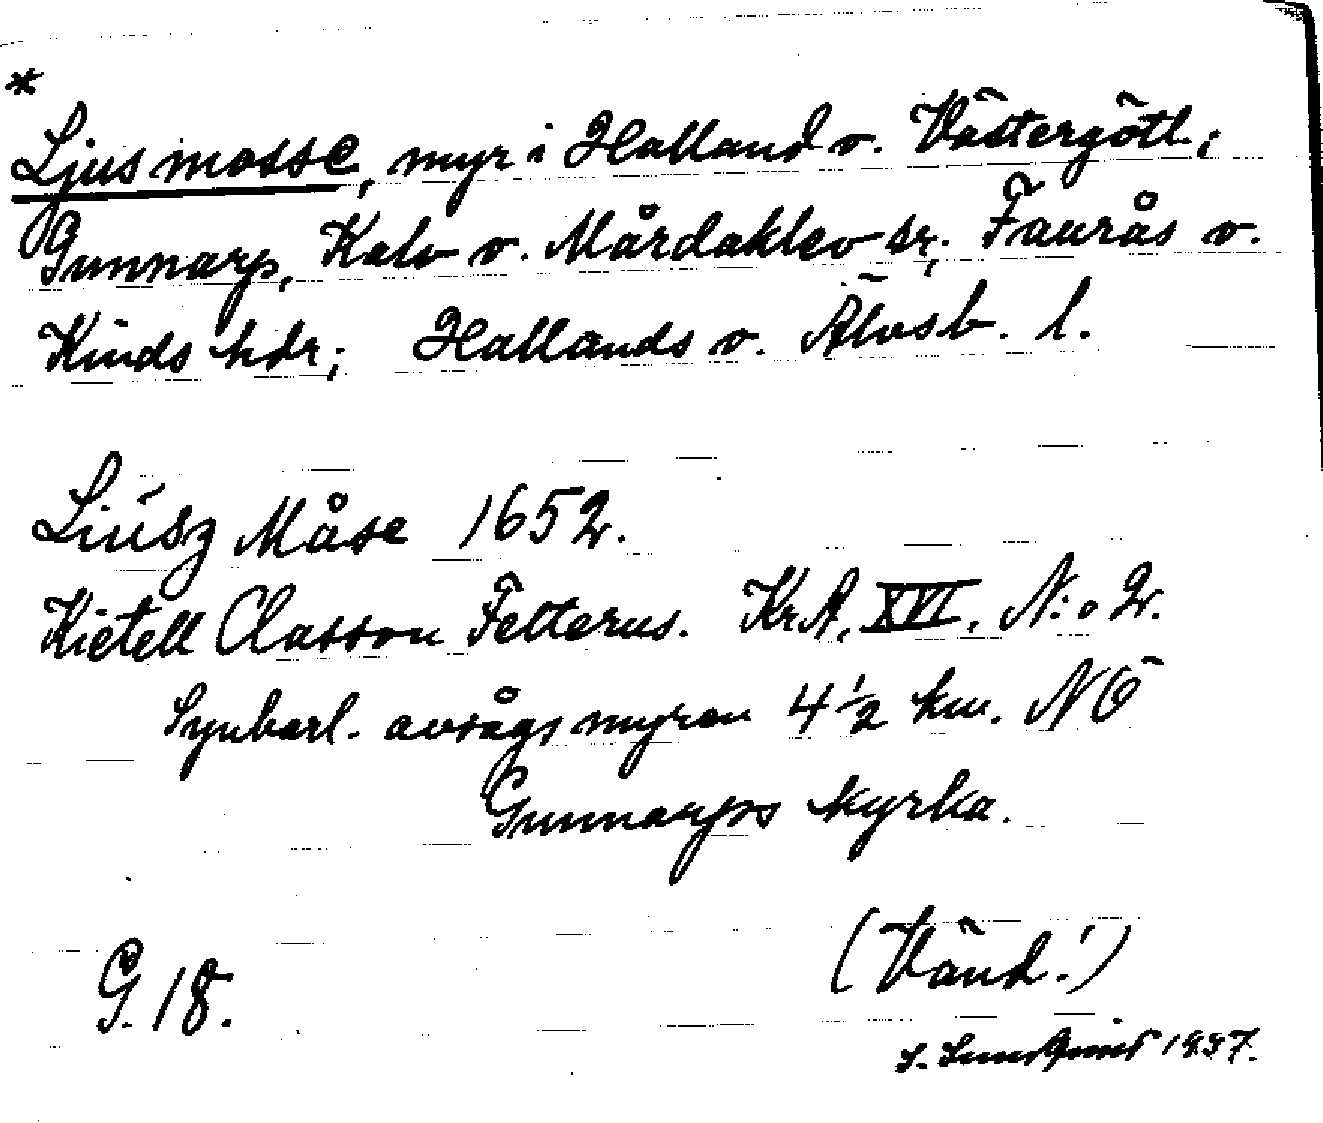 *
Ljusmosse, myr i Halland o. Västergötl.;
Gunnarp, Kalv o. Mårdaklev sr, Faurås o.
Kinds hdr; Hallands o. Älvsb. l.
Liúsz Måse 1652.
Kietell Classon Felterus. Kr.A. XVI. N:o 2.
Synbarl. avsågs myren 4 1/2 km. NÖ
Gunnarps kyrka.
(Vänd!)
G. 18.
1937.